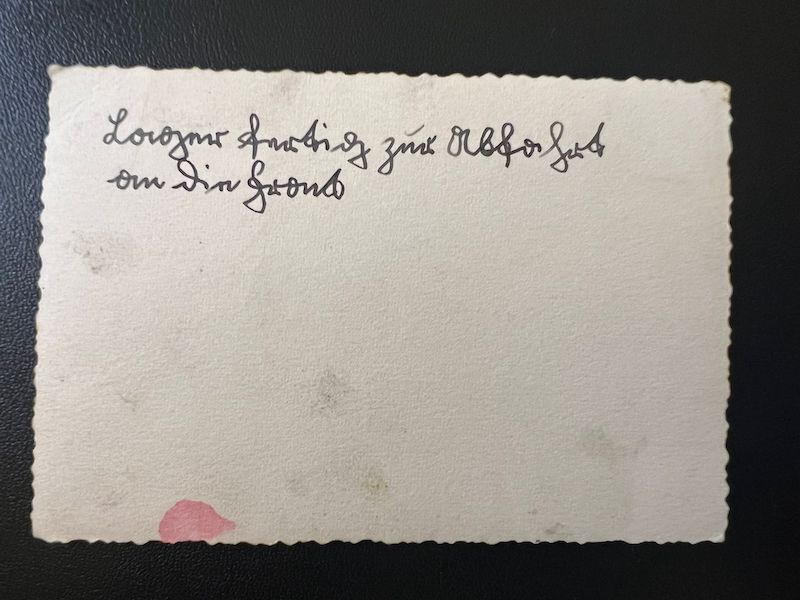 Lager fertig zur Abfahrt
an die Front